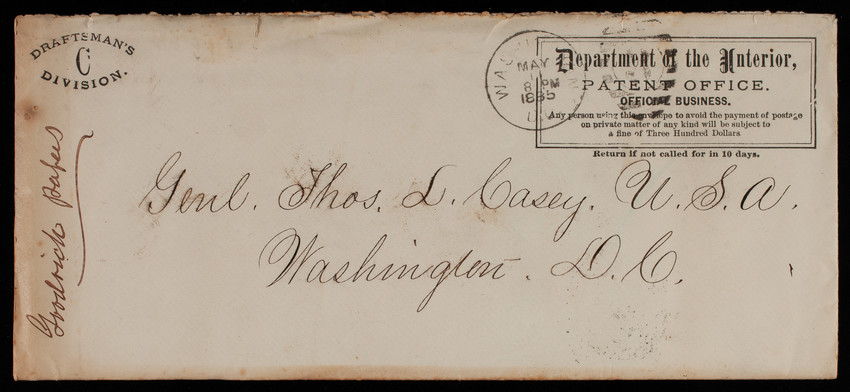 DRAFTSMAN'S
C
DIVISION.
MAY
8 PM
1885
Department of the Interior,
PATENT OFFICE.
OFFICIAL BUSINESS.
Any person using this envelope to avoid the payment of postage
on private matter of any kind will be subject to
a fine of Three Hundred Dollars
Return if not called for in 10 days.
Genl. Thos. L. Casey. U. S. A.
Washington. D. C.
Goodrich papers